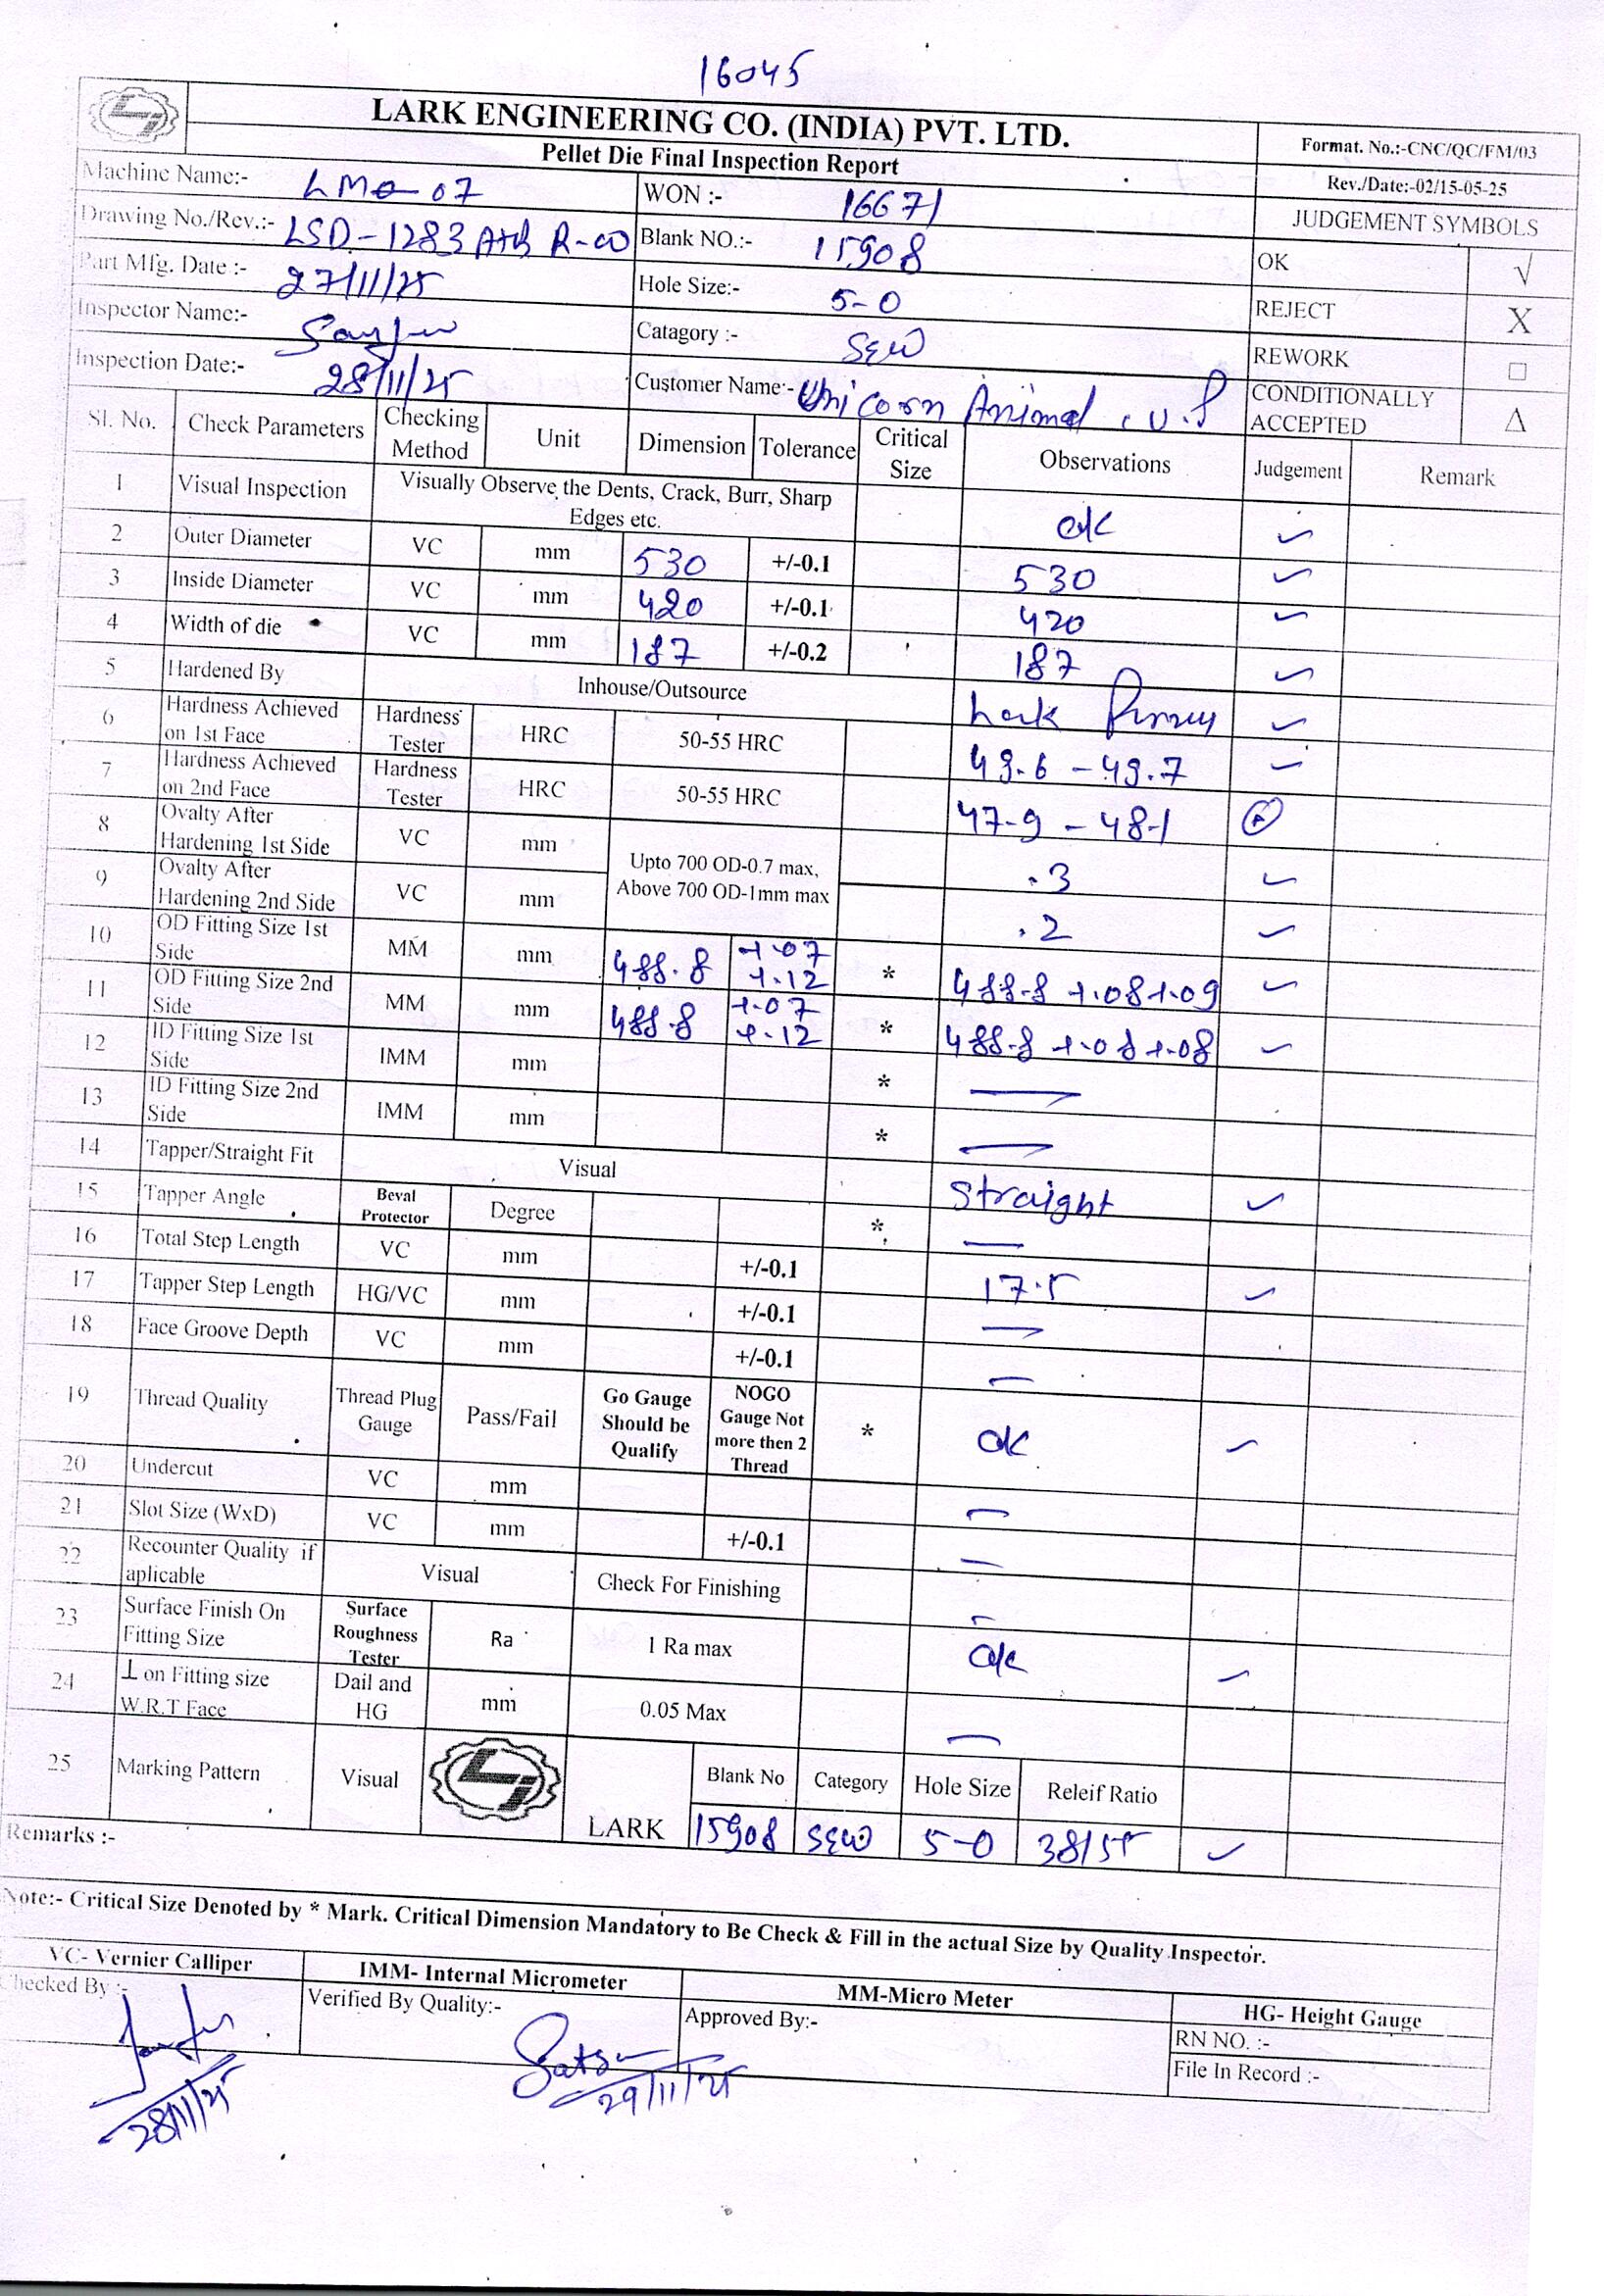 16045
LARK ENGINEERING CO. (INDIA) PVT. LTD.
Pellet Die Final Inspection Report
Format. No.:-CNC/QC/FM/03
Rev./Date:-02/15-05-25
Machine Name:- LMO-07 WON :- 16671 JUDGEMENT SYMBOLS
Drawing No./Rev.:- LSD-1283 R-00 Blank NO.:- 15908 OK √
Part Mfg. Date :- 27/11/25 Hole Size:- 5-0 REJECT X
Inspector Name:- Catagory :- SEW REWORK □
Inspection Date:- 28/11/25 Customer Name:- Unicorn Animal . U.P CONDITIONALLY ACCEPTED Δ
Sl. No. Check Parameters Checking Method Unit Dimension Tolerance Critical Size Observations Judgement Remark
1 Visual Inspection Visually Observe the Dents, Crack, Burr, Sharp Edges etc. ok ✓
2 Outer Diameter VC mm 530 +/-0.1 530 ✓
3 Inside Diameter VC mm 420 +/-0.1 420 ✓
4 Width of die VC mm 187 +/-0.2 187 ✓
5 Hardened By Inhouse/Outsource Lark ✓
6 Hardness Achieved on 1st Face Hardness Tester HRC 50-55 HRC 49.6 - 49.7 ✓
7 Hardness Achieved on 2nd Face Hardness Tester HRC 50-55 HRC 47.9 - 48.1
8 Ovalty After Hardening 1st Side VC mm Upto 700 OD-0.7 max, Above 700 OD-1mm max .3 ✓
9 Ovalty After Hardening 2nd Side VC mm .2 ✓
10 OD Fitting Size 1st Side MM mm 488.8 +.07 +.12 * 488.8 +.08 +.09 ✓
11 OD Fitting Size 2nd Side MM mm 488.8 +.07 +.12 * 488.8 +.08 +.08 ✓
12 ID Fitting Size 1st Side IMM mm * —
13 ID Fitting Size 2nd Side IMM mm * —
14 Tapper/Straight Fit Visual Straight ✓
15 Tapper Angle Beval Protector Degree * —
16 Total Step Length VC mm +/-0.1 17.5 ✓
17 Tapper Step Length HG/VC mm +/-0.1 —
18 Face Groove Depth VC mm +/-0.1 —
19 Thread Quality Thread Plug Gauge Pass/Fail Go Gauge Should be Qualify NOGO Gauge Not more then 2 Thread * ok ✓
20 Undercut VC mm —
21 Slot Size (WxD) VC mm +/-0.1 —
22 Recounter Quality if aplicable Visual Check For Finishing —
23 Surface Finish On Fitting Size Surface Roughness Tester Ra 1 Ra max ok ✓
24 ⊥ on Fitting size W.R.T Face Dail and HG mm 0.05 Max —
25 Marking Pattern Visual LARK Blank No Category Hole Size Releif Ratio
15908 SEW 5-0 38/55 ✓
Remarks :-
Note:- Critical Size Denoted by * Mark. Critical Dimension Mandatory to Be Check & Fill in the actual Size by Quality Inspector.
VC- Vernier Calliper IMM- Internal Micrometer MM-Micro Meter HG- Height Gauge
Checked By :- Verified By Quality:- Approved By:- RN NO. :-
File In Record :-
28/11/25 29/11/25